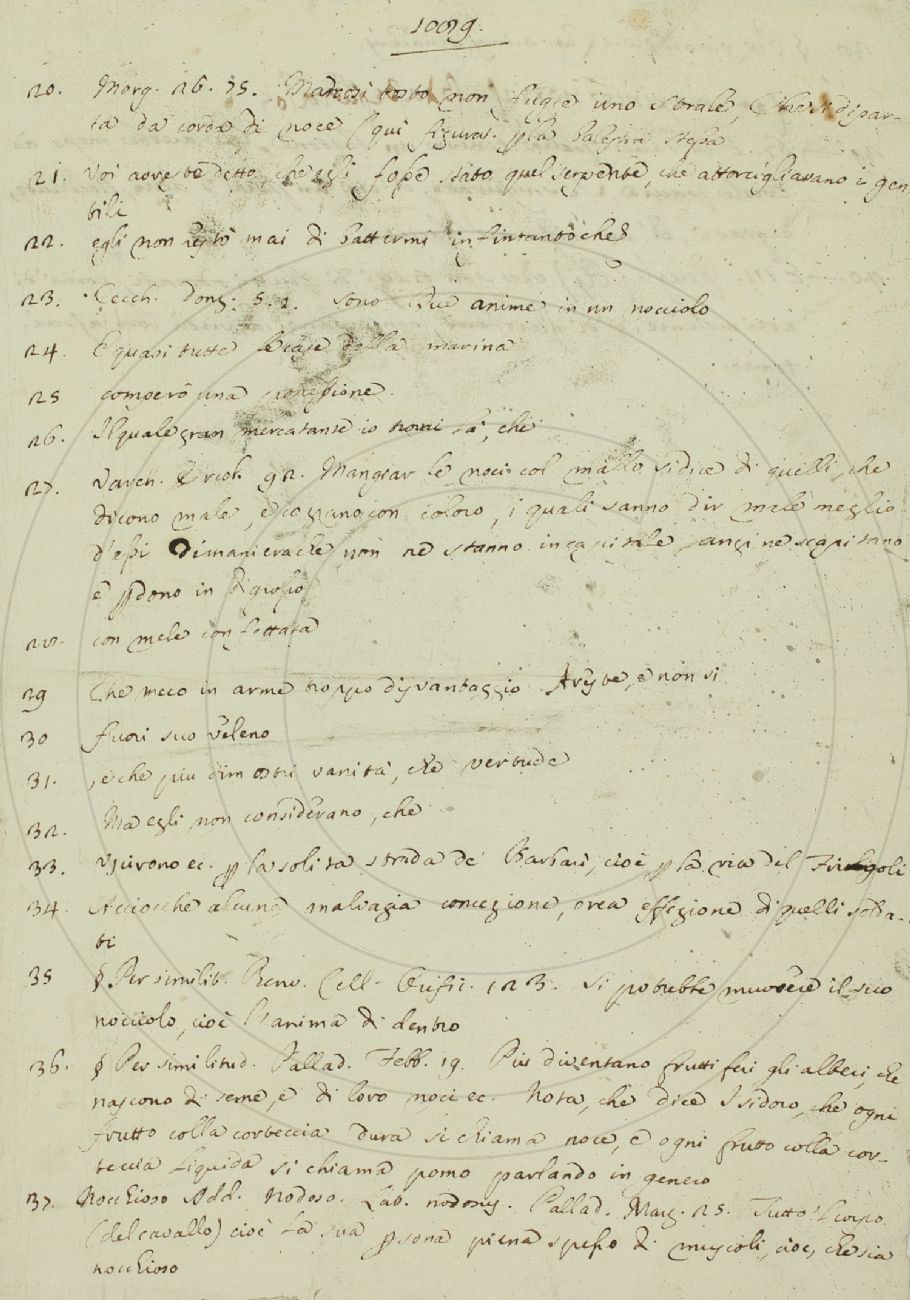 1009.
20. Morg. 26. 75. Ma così tosto non fugge uno strale, Che si dipar-
ta da corda di noce (qui figurat. p la balestra stessa
21. Voi avreste detto, che egli fosse stato quel serpente, che attorcigliavano i gen
tili
22. egli non restò mai di battermi infintantoche
23. Cecch. Donz. 5. 2. Sono due anime in un nocciolo
24. E quasi tutte le case della marina
25 comperò una possessione
26. Il quale gran mercatante io trovai là, che
27. Varch. Ercol. 92. Mangiar le noci col mallo si dice di quelli, che
dicono male, e cozzano con coloro, i quali sanno dir male meglio
d'essi Dimanierachè non ne stanno in capitale, anzi ne scapitano
e pdono in di grosso
28. con mele confettata
29 Che meco in arme troppo disvantaggio Areste, e non si
30 fuori suo veleno
31. , e che piu dimostri vanità, che vertude
32. Ma egli non considerano, che
33. Usirono ec. p la solita strada de' Barbari, cioè p la via del
34. Acciocchè alcuna malvagia concezione, ovea effezione di quelli solda-
ti
35 § Per similit. Benv. Cell. Orific. 123. Si potrebbe muovere il suo
nocciolo, cioè l'anima di dentro
36. § Per similitud. Pallad. Febb. 19. Più diventano fruttiferi gli alberi, che
nascono di seme, e di loro noci ec. Nota, che dice Isidoro, che ogni
frutto colla corteccia dura si chiama noce, e ogni frutto colla cor-
teccia liquida si chiama pomo parlando in genero
37. Nocchioso Add. Nodoso. Lat. nodosus. Pallad. Marz. 25. Tutto 'l corpo
(del cavallo) cioè la sua psona piena spesso di muscoli, cioè, che sia
nocchioso